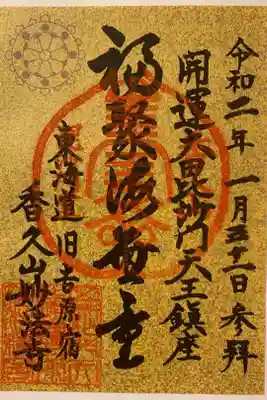 令和二年一月三十一日参拝
開運大毘沙門天王鎮座
福聚海無量
東海道旧吉原宿
香久山妙法寺